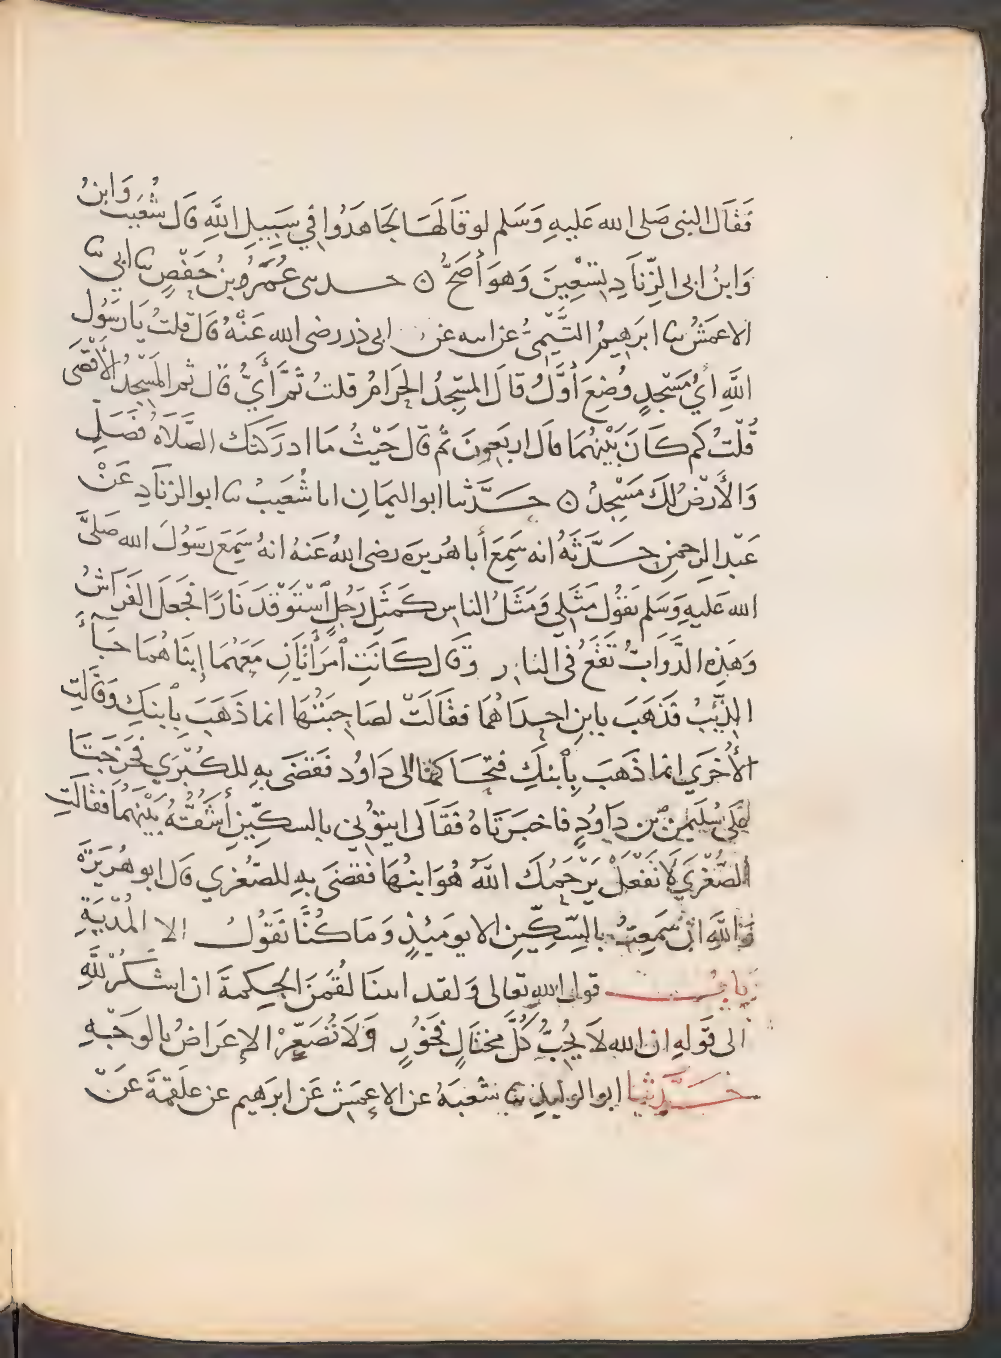 فَقَال النبى صَلى الله عَليهِ وَسَلم لو قَالَهَا لجَاهَدُوا في سَبِيلِ اللَّهِ قَال شُعَيب وَابنُ
وَابنُ ابى الزِّنَادِ تِسْعِينَ وَهوَ أَصَحُّ ن حدثنى عُمَرُو بنُ حَفْصٍ ثنا ابي ثنا
الاعمَشُ ثنا ابرَهِيمُ التَّيْمِىُّ عن ابيه عن ابى ذر رضى الله عَنْهُ قَال قلتُ يَارَسُول
اللَّهِ أيُّ مَسْجِدٍ وُضِعَ أوَّلُ قالَ المسْجِدُ الحَرَامُ قلتُ ثمَّ أيُّ قَال ثم المَسْجِدُ الأَقْصَى
قُلْتُ كَم كَانَ بَيْنَهُمَا قال اربَعونَ ثم قال حَيْثُ مَا ادرَكَتكَ الصَّلَاة فَصَلِّ
وَالأَرْضُ لكَ مَسْجِدٌ ن حَدَّثنا ابو اليَمَانِ انا شُعَيبٌ ثنا ابو الزنَادِ عَنْ
عَبْد الرحمنِ حَدَّثَهُ انه سَمِعَ أبا هُرَيرَه رضى اللهُ عَنهُ انهُ سَمِعَ رَسُولَ الله صَلىَّ
الله عَليهِ وَسَلم يَقُول مَثَلِي وَمَثَلُ الناسِ كَمثَلِ رَجُلٍ ٱسْتَوْقَدَ نَارًا فجَعلَ الفَرَاشُ
وَهَذِهِ الدَّوَابُّ تَقَعُ فى النارِ وَقَال كَانَتِ ٱمرَأتَانِ مَعَهُمَا ابنَاهُمَا جَآءَ
الذِّئبُ فَذهَبَ بابنِ احدَاهُمَا فقَالَتْ لصَاحِبَتِهَا انما ذَهَبَ بِٱبنكِ وَقَالتِ
الأُخْرَي انما ذَهَبَ بِٱبنكِ فتحَاكمتَا الى دَاوُد فَقضَى بهِ للكُبْرَي فخَرَجَتَا
عَلى سُلَيمنَ بن دَاودٍ فاخبَرتَاهُ فَقَالَ ايتوُني بالسكِّينِ أشُقُّهُ بَيْنَهُمَا فقَالَتِ
الصُّغْرَي لَا تَفْعَلْ يَرْحَمُكَ اللَّهُ هُوَ ابنُهَا فقَضىَ بهِ للصُّغرَي قَال ابو هُرَيْرَةَ
وَاللَّهِ انْ سَمِعتُ بالسِّكِّينِ الا يومَيئذٍ وَمَا كُنَّا نَقُولُ الا المُدْيَةِ
بابُ قول الله تعالى وَلقد اتينَا لقُمَنَ الحِكمةَ ان اشكُرْ للَّهِ
الى قَولِهِ ان الله لَا يحُبُّ كُلَّ مختَالٍ فَخوُرٍ وَلَا تُصَعِّرْ الإعرَاضُ بالوَجْهِ
حَدَّثنا ابو الوليدِ ثنا شعبَهُ عن الاعمَشِ عَن ابرَهيم عن علقمَةَ عَنْ